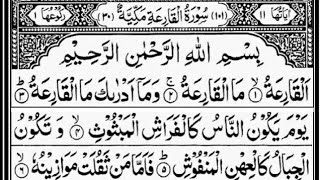 اٰيَاتُهَا ١١ (١٠١) سُوْرَةُ الْقَارِعَةِ مَكِّيَّةٌ (٣٠) رُكُوْعُهَا ١
بِسْمِ اللّٰهِ الرَّحْمٰنِ الرَّحِيْمِ
اَلْقَارِعَةُ ۙ﴿١﴾ مَا الْقَارِعَةُ ۚ﴿٢﴾ وَمَاۤ اَدْرٰىكَ مَا الْقَارِعَةُ ؕ﴿٣﴾
يَوْمَ يَكُوْنُ النَّاسُ كَالْفَرَاشِ الْمَبْثُوْثِ ۙ﴿٤﴾ وَ تَكُوْنُ
الْجِبَالُ كَالْعِهْنِ الْمَنْفُوْشِ ؕ﴿٥﴾ فَاَمَّا مَنْ ثَقُلَتْ مَوَازِيْنُهٗ ۙ﴿٦﴾